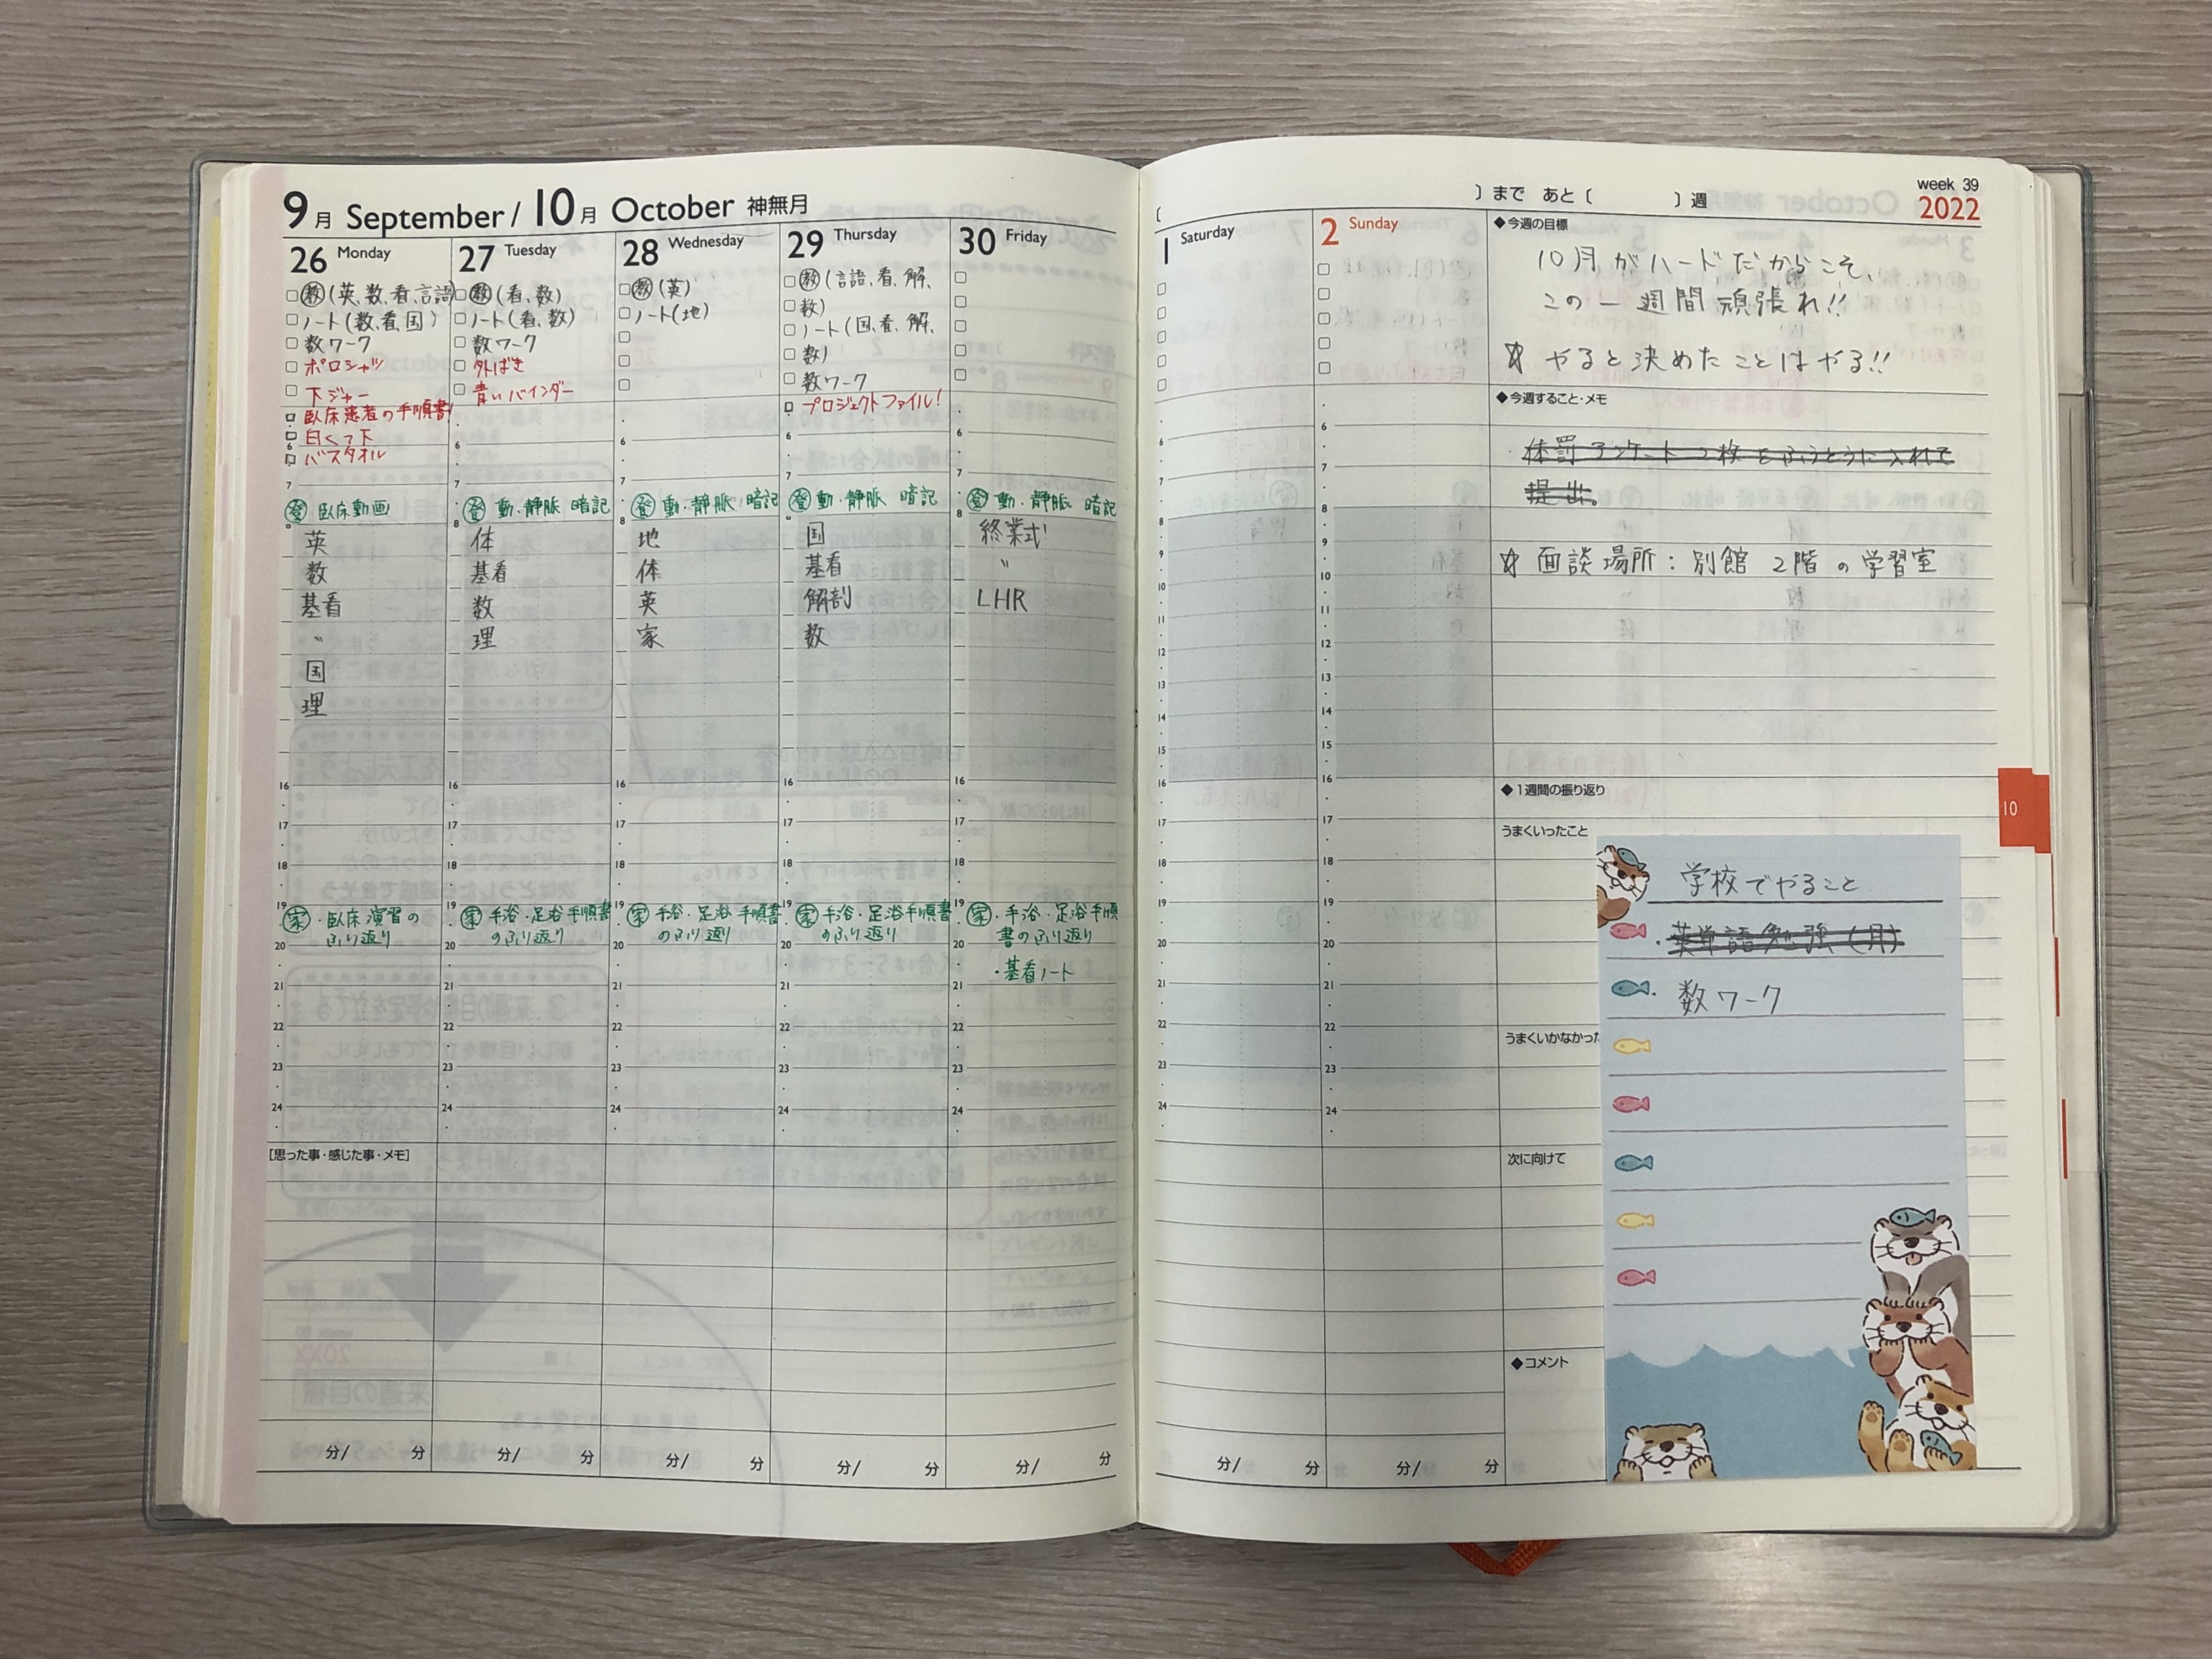 9月 September / 10月 October 神無月
26 Monday
□教(英、数、看、言語)
□ノート(数、看、国)
□数ワーク
□ポロシャツ
□下ジャー
□臥床患者の手順書
□白くつ下
□バスタオル
6
7
登 臥床動画
8
英
数
基看
〃
国
理
16
17
18
19
家・臥床演習の
ふり返り
20
21
22
23
24
27 Tuesday
□教(看、数)
□ノート(看、数)
□数ワーク
□外ばき
□青いバインダー
6
7
登 動・静脈 暗記
8
体
基看
数
理
16
17
18
19
家 手浴・足浴手順書
のふり返り
20
21
22
23
24
28 Wednesday
□教(英)
□ノート(地)
□
□
□
6
7
登 動・静脈 暗記
8
地
体
英
家
16
17
18
19
家 手浴・足浴手順書
のふり返り
20
21
22
23
24
29 Thursday
□教(言語、看、解、
□数)
□ノート(国、看、解、
□数)
□数ワーク
□プロジェクトファイル!
6
7
登 動・静脈 暗記
国
基看
解剖
数
16
17
18
19
家 手浴・足浴手順書
のふり返り
20
21
22
23
24
30 Friday
□
□
□
□
□
6
7
登 動・静脈 暗記
8
終業式
〃
LHR
16
17
18
19
家・手浴・足浴手順
書のふり返り
20
・基看ノート
21
22
23
24
[思った事・感じた事・メモ]
分/ 分
分/ 分
分/ 分
分/ 分
分/ 分
〔 〕まで あと〔 〕週
week 39
2022
1 Saturday
□
□
□
□
□
6
7
8
9
10
11
12
13
14
15
16
17
18
19
20
21
22
23
24
分/ 分
2 Sunday
□
□
□
□
□
6
7
8
9
10
11
12
13
14
15
16
17
18
19
20
21
22
23
24
分/ 分
◆今週の目標
10月がハードだからこそ、
この一週間頑張れ!!
☆ やると決めたことはやる!!
◆今週すること・メモ
体罰アンケート2枚をふうとうに入れて
提出。
☆ 面談場所:別館 2階の学習室
◆1週間の振り返り
うまくいったこと
うまくいかなかった
次に向けて
◆コメント
学校でやること
・英単語勉強(月)
・数ワーク
10